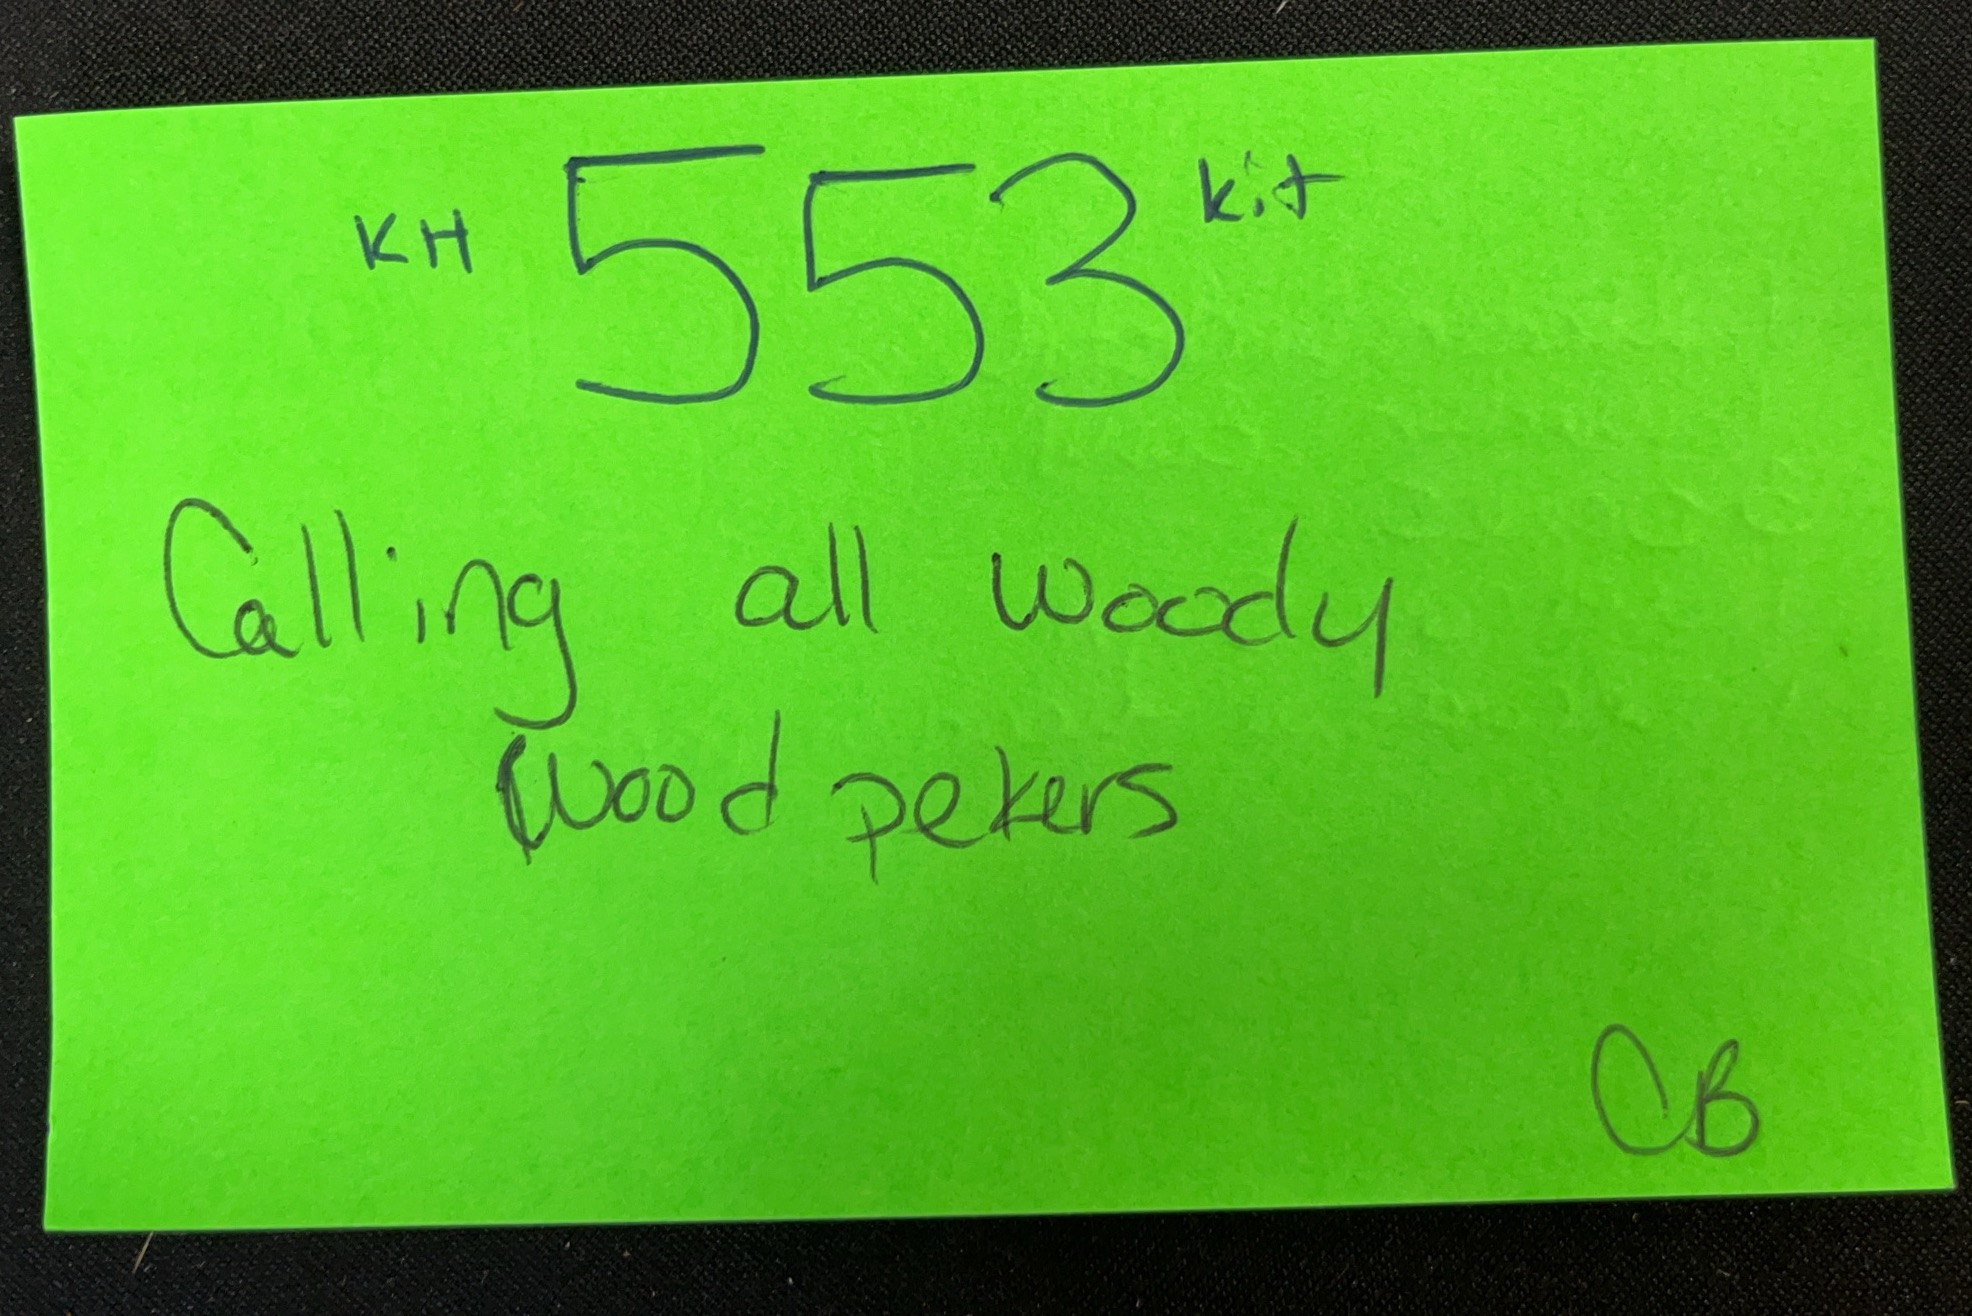 KH 553 Kit
Calling all woody
Wood pekers
CB